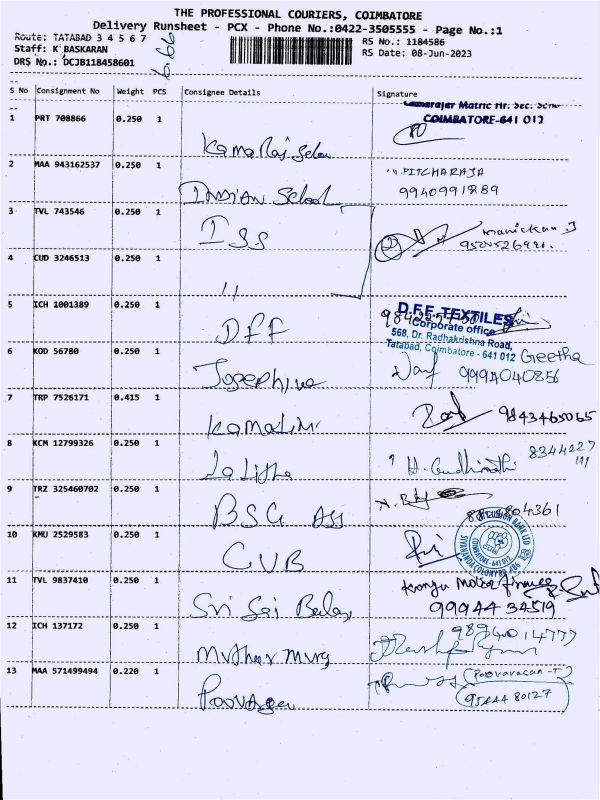 THE PROFESSIONAL COURIERS, COIMBATORE
Delivery Runsheet - PCX - Phone No.:0422-3505555 - Page No.:1
Route: TATABAD 3 4 5 6 7
Staff: K BASKARAN
DRS No.: DCJB118458601
RS No.: 1184586
RS Date: 08-Jun-2023
S No Consignment No Weight PCS Consignee Details Signature
Kamarajar Matric Hr. Sec.
COIMBATORE-641 012
1 PRT 708866 0.250 1
Kamaraj
2 MAA 943162537 0.250 1 PITCHARAJA
INDIAN School 9940991889
3 TVL 743546 0.250 1
ISS
Manickam
4 CUD 3246513 0.250 1
"
5 ICH 1001389 0.250 1
DFF
D.F.F. TEXTILES
Corporate office
568, Dr. Radhakrishna Road,
Tatabad, Coimbatore - 641 012
6 KOD 56780 0.250 1 Geetha
Josephine 9994040856
7 TRP 7526171 0.415 1
Kamalini 9843465065
8 KCM 12799326 0.250 1 8344227
Lalitha
9 TRZ 325460702 0.250 1
BSG Ass
10 KMU 2529583 0.250 1
CUB
11 TVL 9837410 0.250 1
Sri Sai
99944 34519
12 ICH 137172 0.250 1 9894014777
13 MAA 571499494 0.220 1 Poovarasan-T
95444 80127